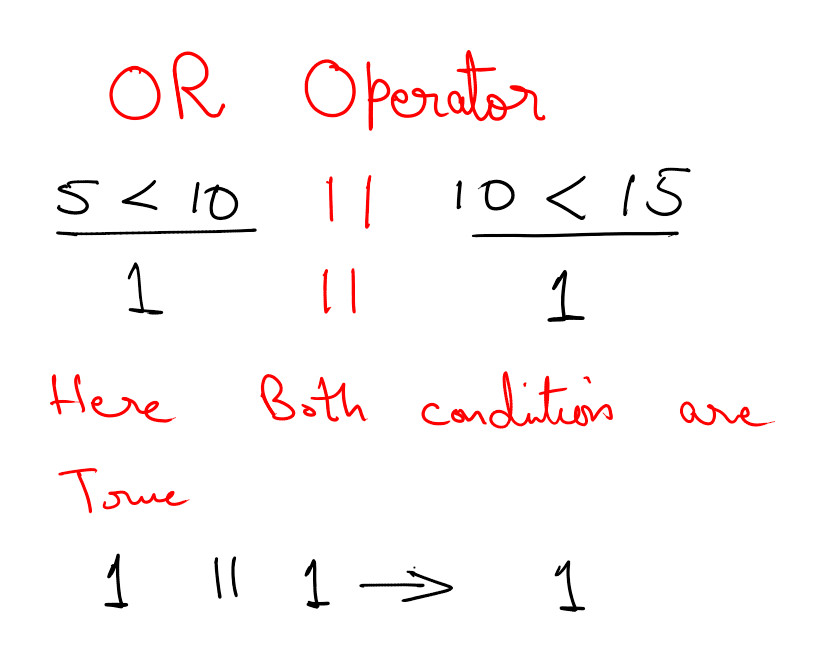 OR Operator
5 < 10 || 10 < 15
1 || 1
Here Both condition are
True
1 || 1 → 1